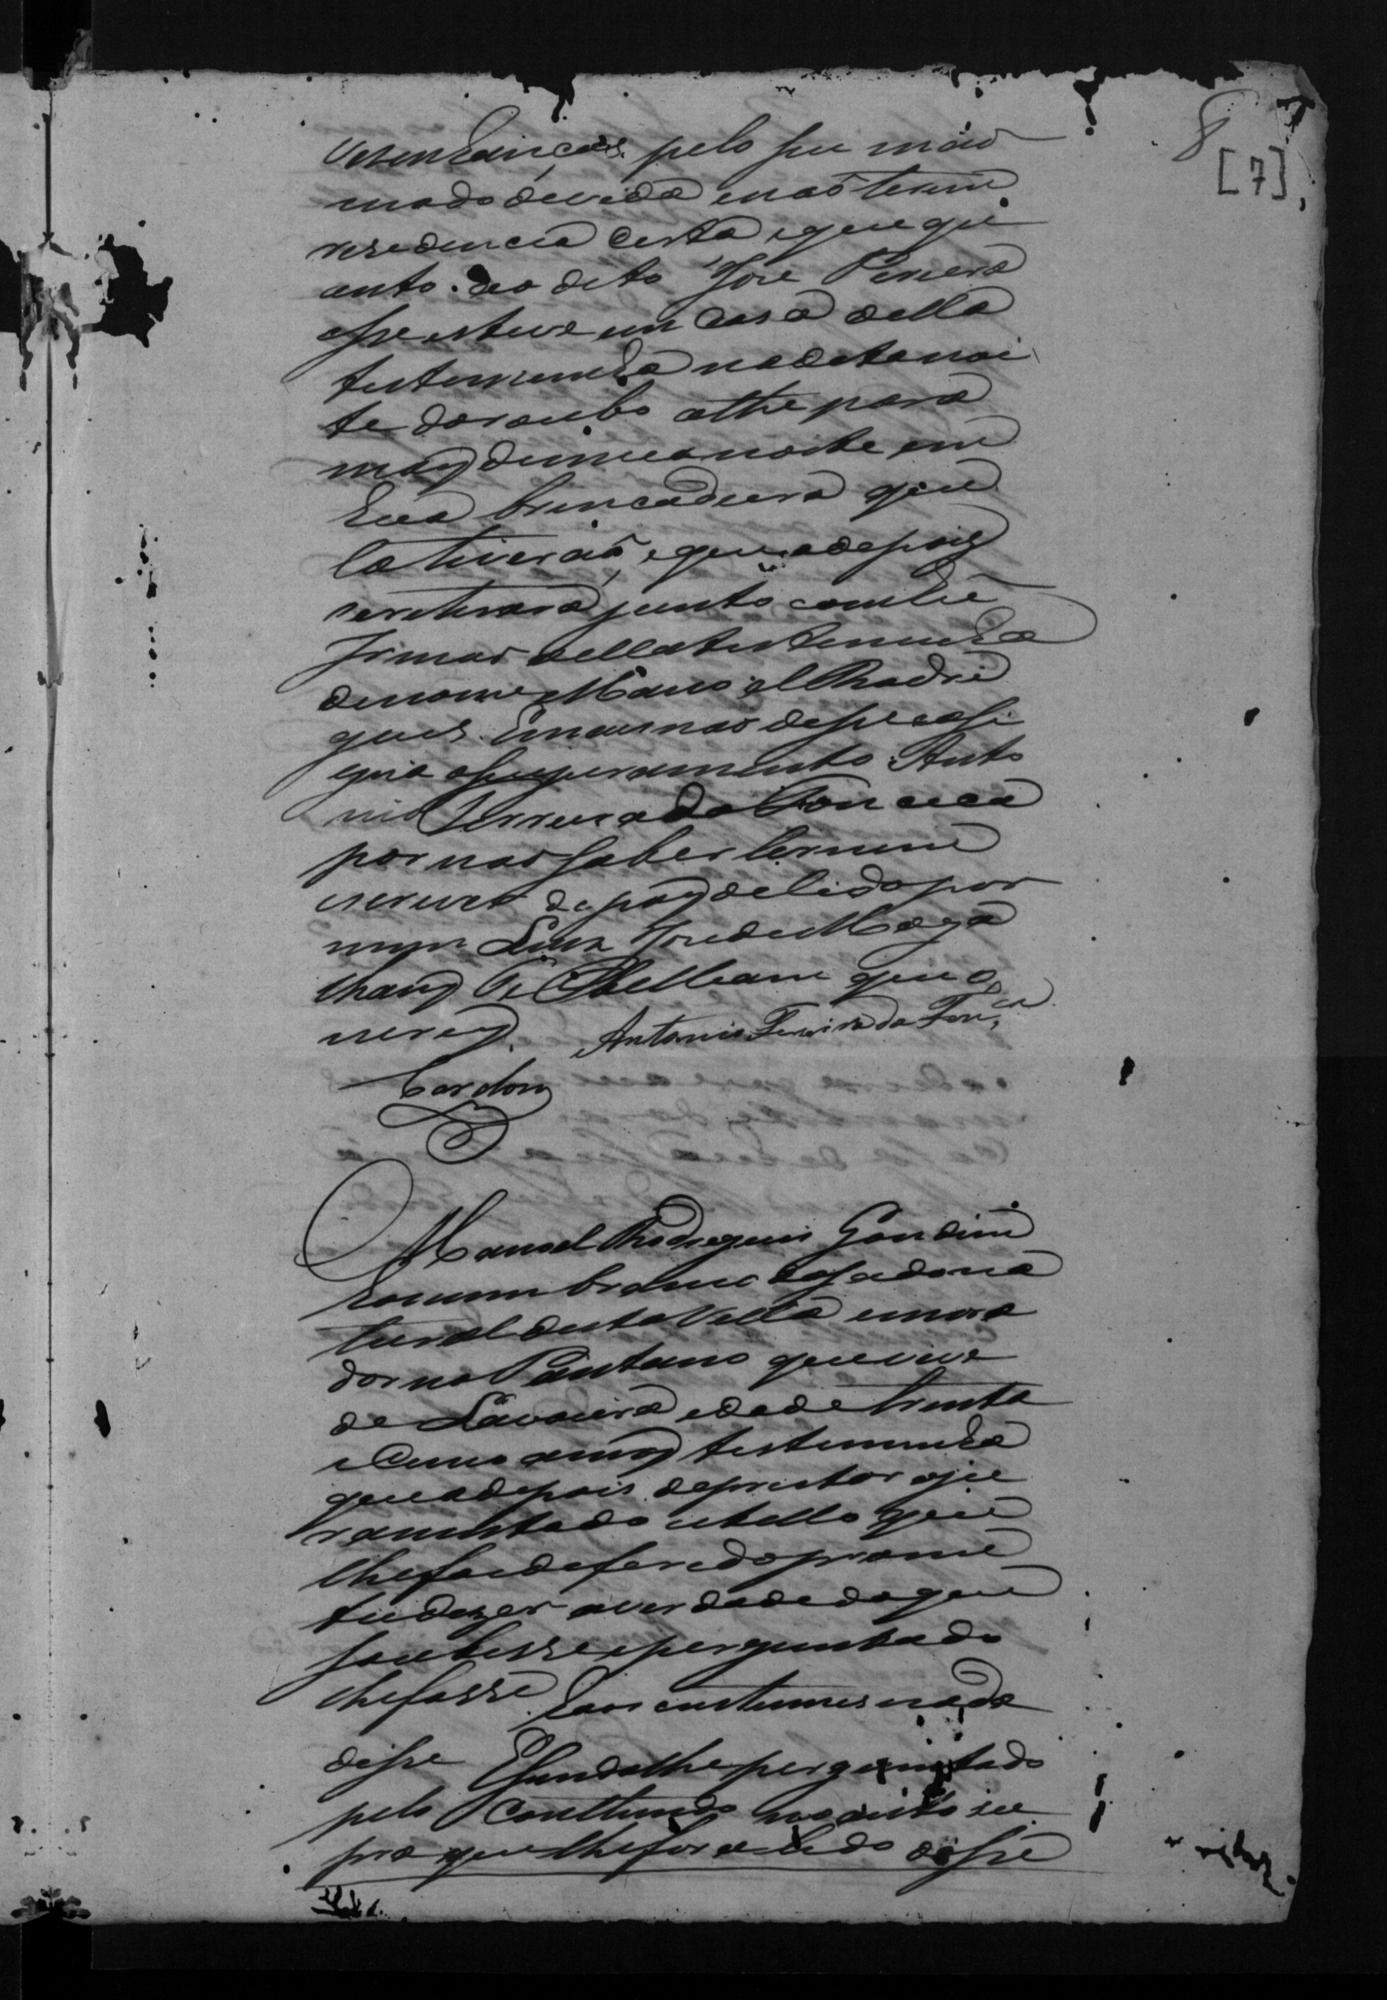 8
[7]
vezenhanças pelo seu máo
modo de vida e naõ terem
rezidencia certa, e que qu
anto ao dito Joze Pereira
esse esteve em casa della
testemunha na dita noi
te do roubo athe para
mais de meia noite em
hua brincadeira que
la tiveraõ, e que ao depois
se retirara junto com hu
Irmao della testemunha
de nome Manoel Rodri
gues. E mais nao disse e assi
gna a seu juramento Anto
nio Ferreira da Fonceca
por nao saber ler nem
escrever depois de lido por
mim Luiz Joze de Maga
lhains que o
screvy. Antonio Ferreira da Fon.ca
Cardozo
Manoel Rodrigues Gondim
homem branco cazado na
tural desta Villa e mora
dor no Pantano que vive
de Lavoura idade trinta
e cinco annos testemunha
que ao depois de prestar o ju
ramentado a tello que
lhe foi deferido prome
teu dizer a verdade do que
soubesse e perguntado
lhe fosse. E aos custumes nada
disse E sendo lhe perguntado
pelo contheudo no auto su
pra que lhe fora lido disse